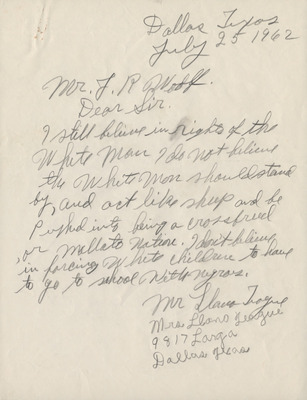 Dallas Texas
July 25 1962
Mr. J. R
Dear Sir.
I still believe in rights of the
White Man I do not believe
the White Man should stand
by, and act like sheep and be
Pushed into being a crossbreed
or Mallato Nation. I don't believe
in forcing White children to have
to go to school with negroes.
Mr
Mrs
9817 Larga
Dallas Texas